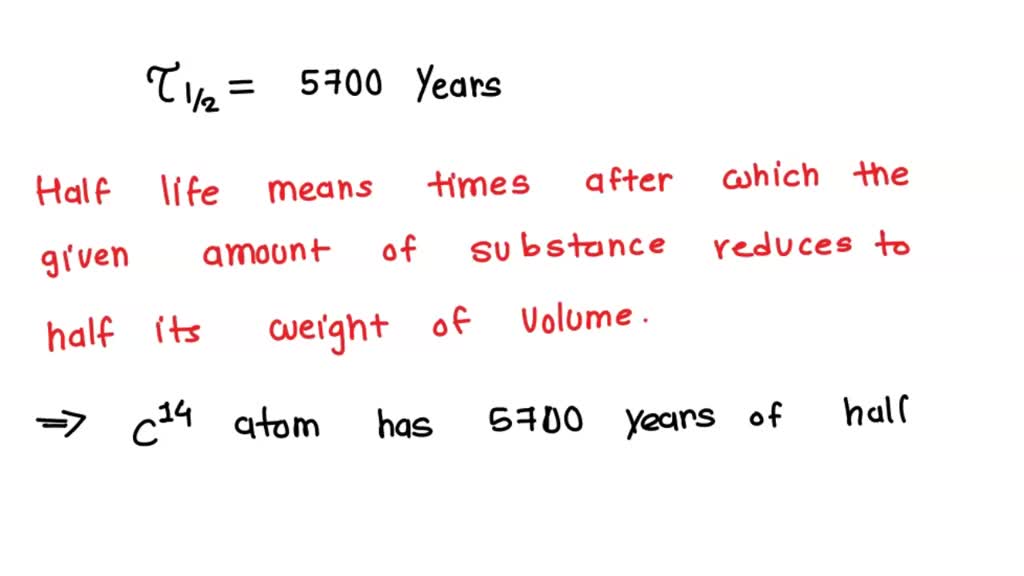 τ1/2 = 5700 Years
Half life means times after which the
given amount of substance reduces to
half its weight of Volume.
⇒ C¹⁴ atom has 5700 years of half